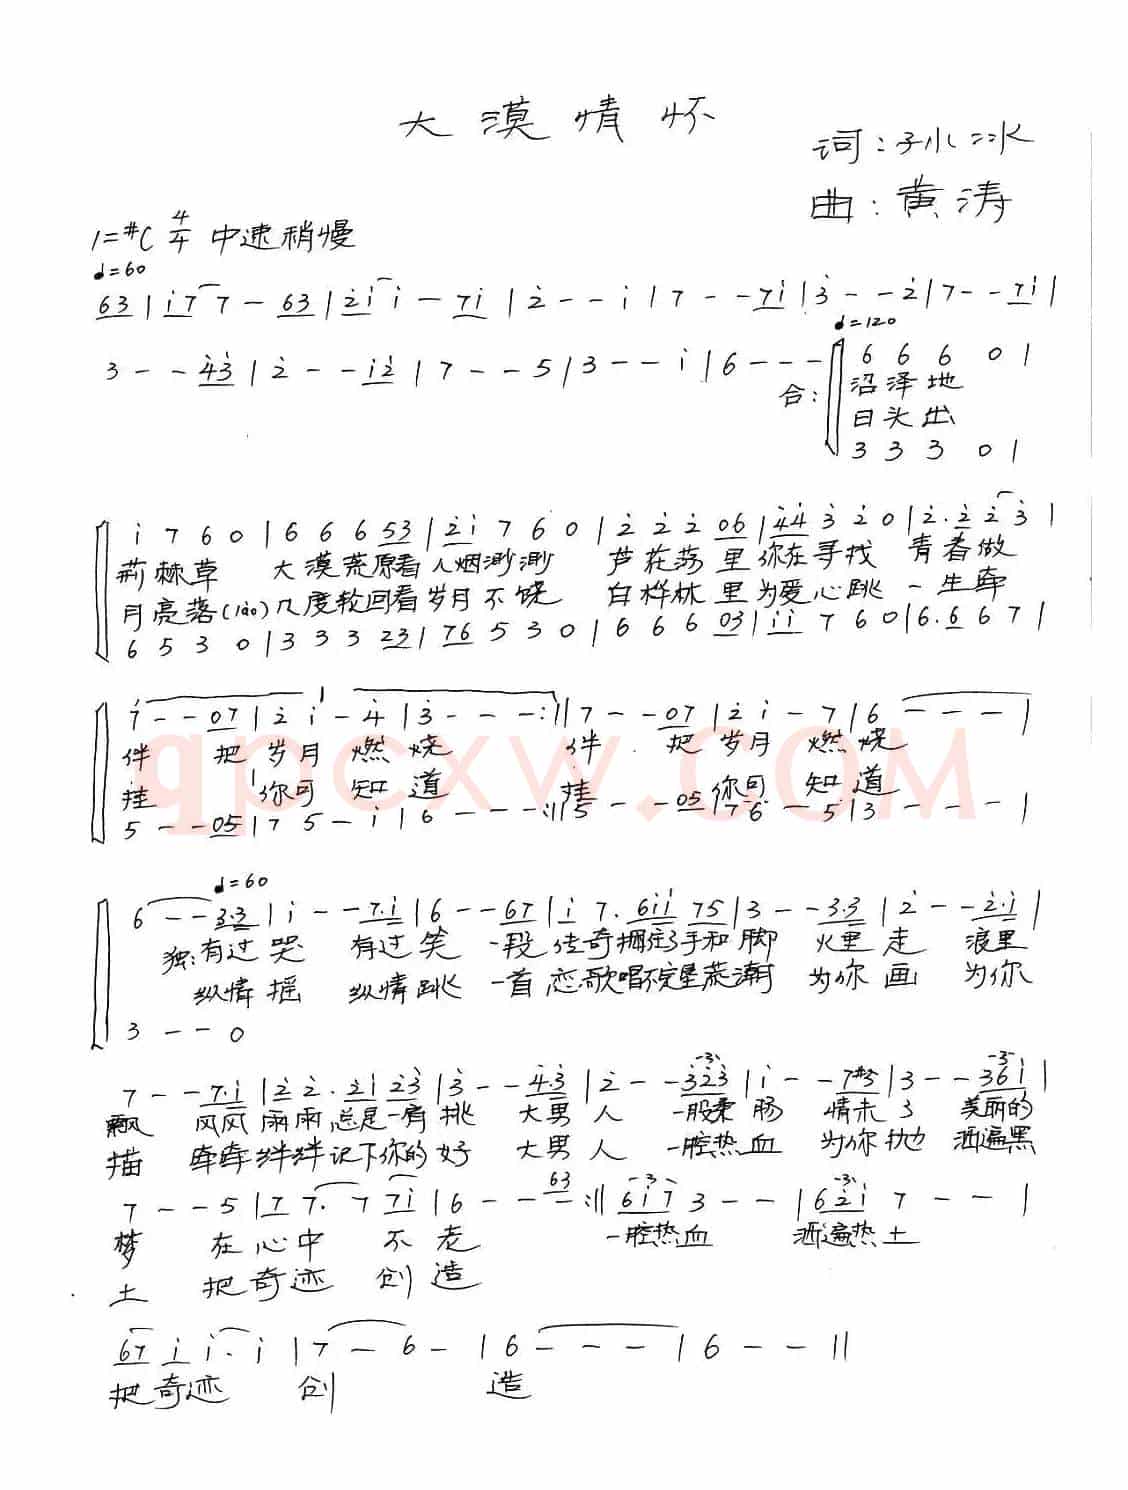 大漠情怀
词:孙冰
曲:黄涛
1=#C 4/4 中速稍慢
♩=60
63|i77-63|2ii-7i|2--i|7---7i|3--2|7--7i|
♩=120
3--43|2--i2|7--5|3--i|6---|6660|
合:沼泽地
日头出
3330|
i760|66653|2i760|22206|44320|2.223|
荊棘草 大漠荒原看人烟渺渺 芦花荡里你在寻找 青春做
月亮落(lào)几度轮回看岁月不饶 白桦林里为爱心跳 一生牵
6530|33323|76530|66603|ii760|6.667|
7--07|2i-4|3---:||7--07|2i-7|6---|
伴 把岁月燃烧 伴 把岁月燃烧
挂 你可知道 挂 你可知道
5--05|75-i|6---:||5--05|76-5|3---|
♩=60
6--3.3|i--7.i|6--67|i7.6ii75|3--3.3|2--2.i|
独:有过哭 有过笑 一段传奇拥住了手和脚 火里走 浪里
纵情摇 纵情跳 一首恋歌唱不完星荒潮 为你画 为你
3--0
7--7.i|22.2i23|3--4.3|2--323|i--7#5|3--36i|
飘 风风雨雨总是一肩挑 大男人 一股柔肠 情未了 美丽的
描 牵牵绊绊记下你的好 大男人 一腔热血 为你抛 洒遍黑
7--5|77.77i|6--63:||6i73--|62i7--|
梦 在心中不老 一腔热血 洒遍热土
土 把奇迹创造
67ii.i|7-6-|6---|6--||
把奇迹 创 造
qpcxw.COM